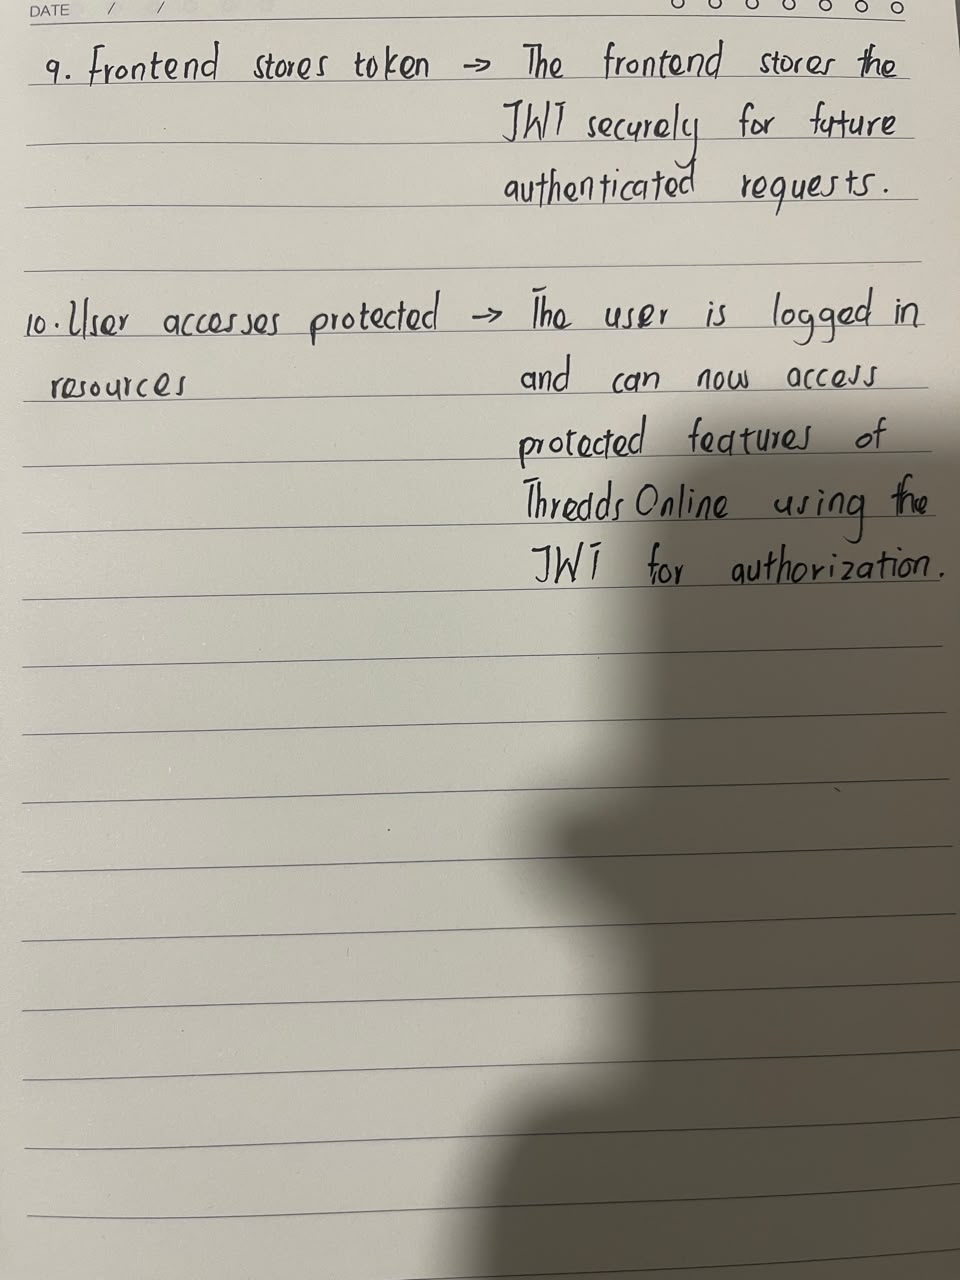 DATE / /
9. Frontend stores token → The frontend stores the
JWT securely for future
authenticated requests.
10. User accesses protected → The user is logged in
resources and can now access
protected features of
Thredds Online using the
JWT for authorization.